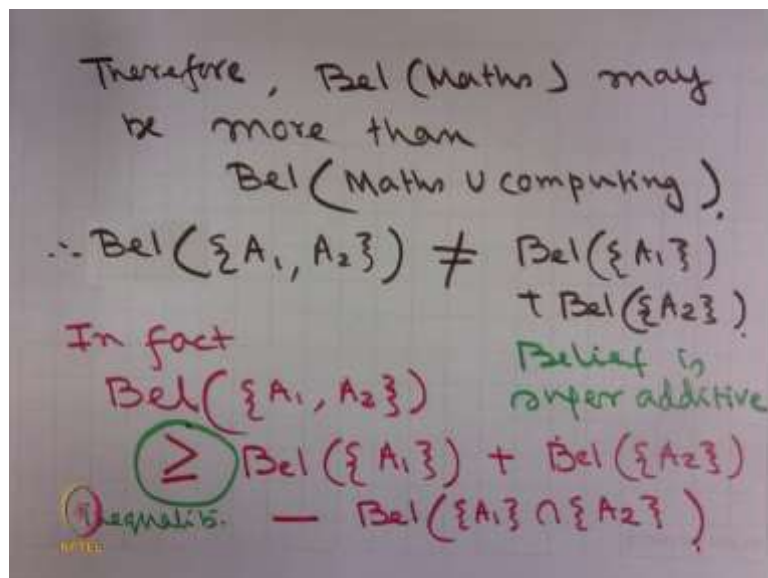 Therefore, Bel (Maths) may
be more than
Bel (Maths ∪ computing).
∴ Bel({A₁, A₂}) ≠ Bel({A₁})
+ Bel({A₂})
In fact
Belief is
super additive
Bel({A₁, A₂})
≥ Bel({A₁}) + Bel({A₂})
Inequality. — Bel({A₁} ∩ {A₂})
NPTEL